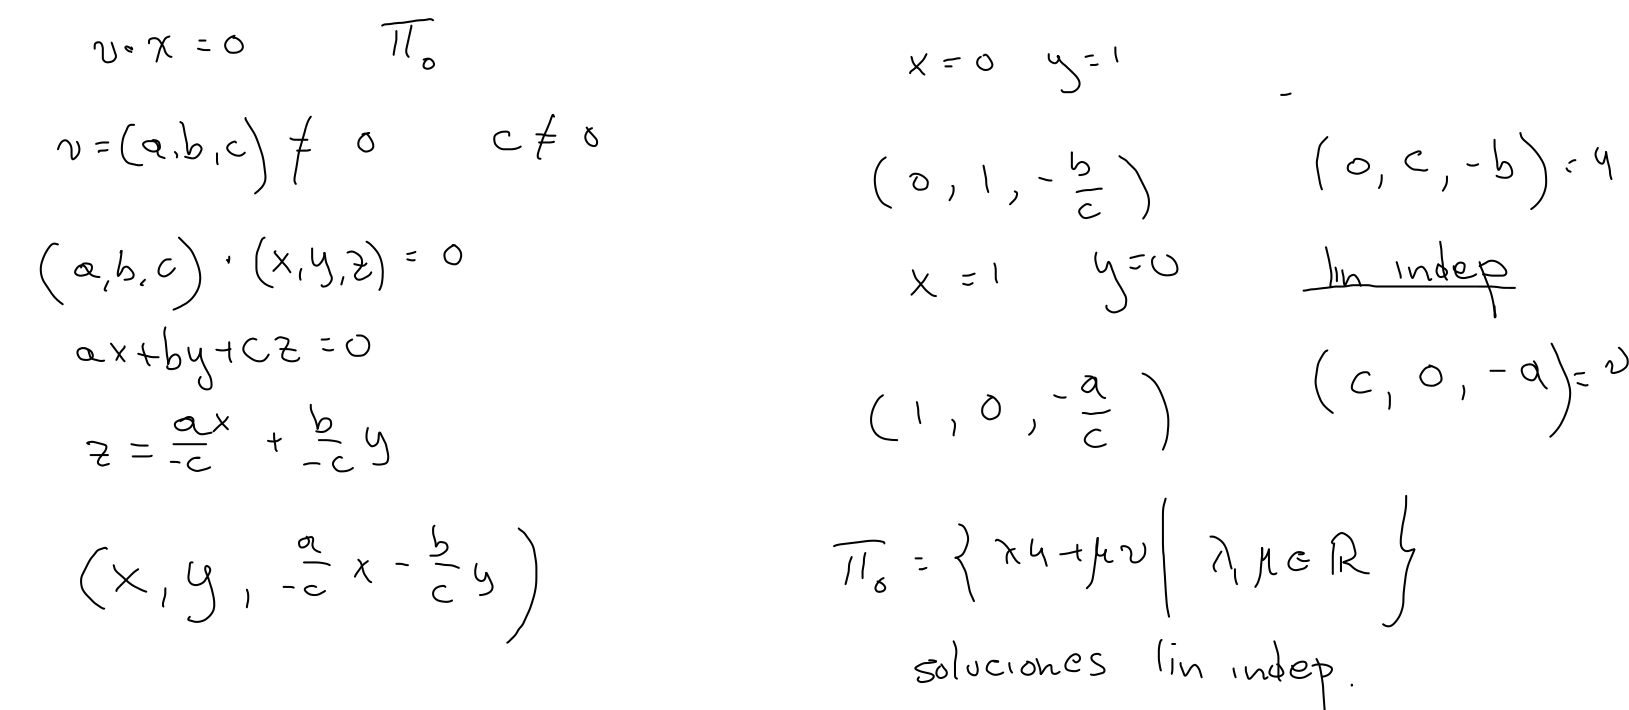 v·x = 0   Π₀
v = (a,b,c) ≠ 0   c ≠ 0
(a,b,c) · (x,y,z) = 0
ax+by+cz = 0
z = ax/-c + b/-c y
(x, y, a/-c x - b/c y)
x = 0   y = 1
(0, 1, -b/c)   (0, c, -b) = u
x = 1   y = 0   lin indep
(1, 0, -a/c)   (c, 0, -a) = v
Π₀ = { λu+μv | λ, μ ∈ ℝ }
soluciones lin indep.